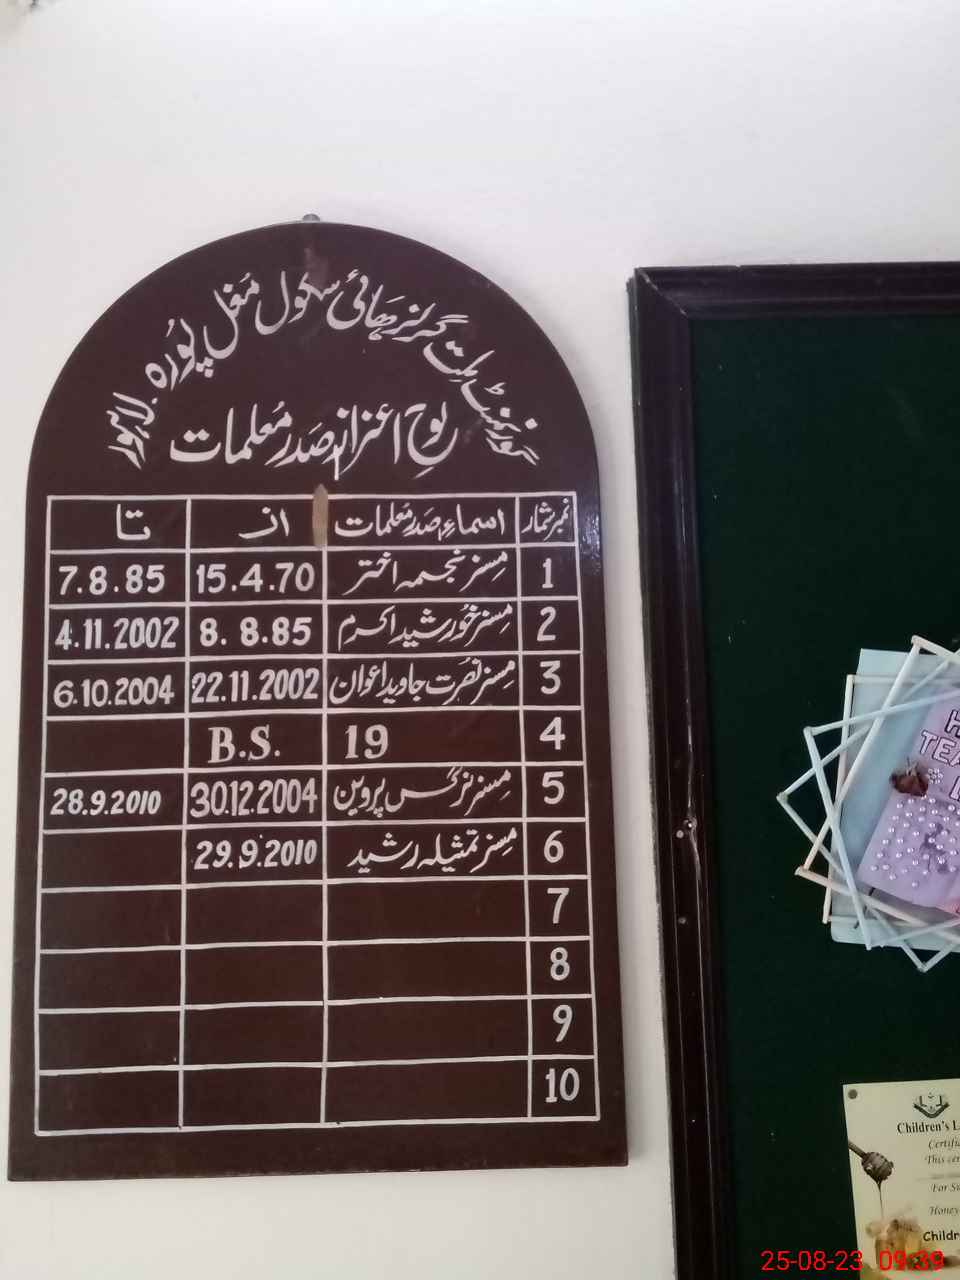 گورنمنٹ ملت گرلز ہائی سکول مغل پورہ۔ لاہور
لوح اعزاز صدر معلمات
نمبر شمار اسماء صدر معلمات از تا
1 مسز نجمہ اختر 15.4.70 7.8.85
2 مسز خورشید اکرم 8.8.85 4.11.2002
3 مسز نصرت جاوید اعوان 22.11.2002 6.10.2004
4 19 B.S.
5 مسز نرگس پروین 30.12.2004 28.9.2010
6 مسز تمثیلہ رشید 29.9.2010
7
8
9
10
H
TEA
Children's L
Certific
This cer
For Su
Honey
Childre
25-08-23 09:39